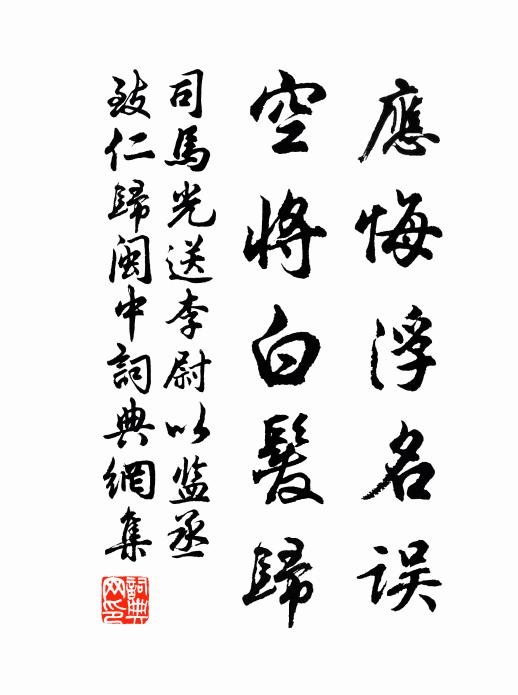 應悔浮名误
空將白髮歸
司馬光送李尉以监丞
致仁歸閩中詞典網集
詞典網印